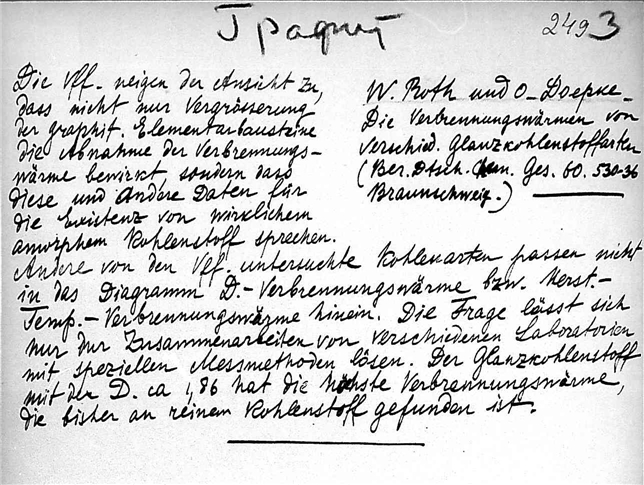 Графит
2493
W. Roth und O. Doepke.
Die Verbrennungswärmen von
verschied. Glanzkohlenstoffarten
(Ber. Dtsch. Chem. Ges. 60. 530-36
Braunschweig.)
Die Vff. neigen der Ansicht zu,
dass nicht nur Vergrösserung
der graphit. Elementarbausteine
die Abnahme der Verbrennungs-
wärme bewirkt, sondern dass
diese und andere Daten für
die Existenz von wirklichem
amorphem Kohlenstoff sprechen.
Andere von den Vff. untersuchte Kohlenarten passen nicht
in das Diagramm D.-Verbrennungswärme bzw. Herst.-
Temp.-Verbrennungswärme hinein. Die Frage lässt sich
nur dur Zusammenarbeiten von verschiedenen Laboratorien
mit speziellen Messmethoden lösen. Der Glanzkohlenstoff
mit der D. ca 1,86 hat die höchste Verbrennungswärme,
die bisher an reinem Kohlenstoff gefunden ist.